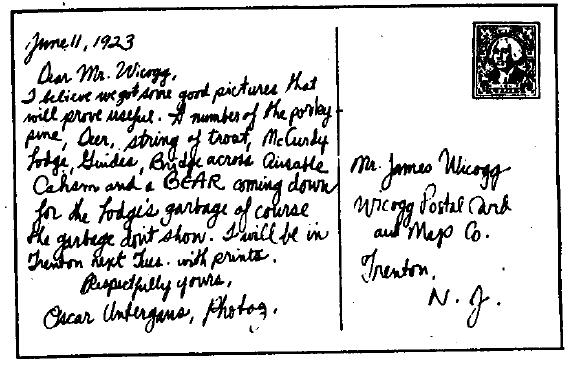 June 11, 1923
Dear Mr. Wicogg,
I believe we got some good pictures that
will prove useful. A number of the porky-
pine, Deer, string of troat, McCurdy
Lodge, Guides, Bridge across Ausable
Cahsm and a BEAR coming down
for the Lodge's garbage of course
the garbage dont show. I will be in
Trenton next Tues. with prints.
Respectfully yours,
Oscar Untergans, Photog.
Mr. James Wicogg
Wicogg Postal Card
and Map Co.
Trenton,
N. J.